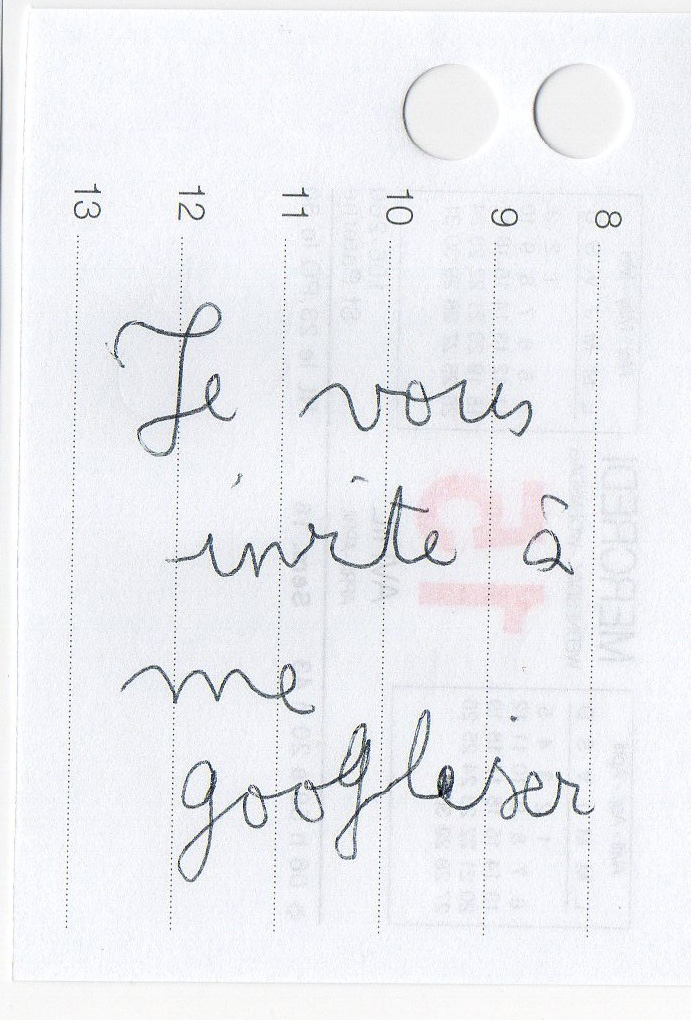 8
9
10
11
12
13
Je vous
invite à
me
googleiser